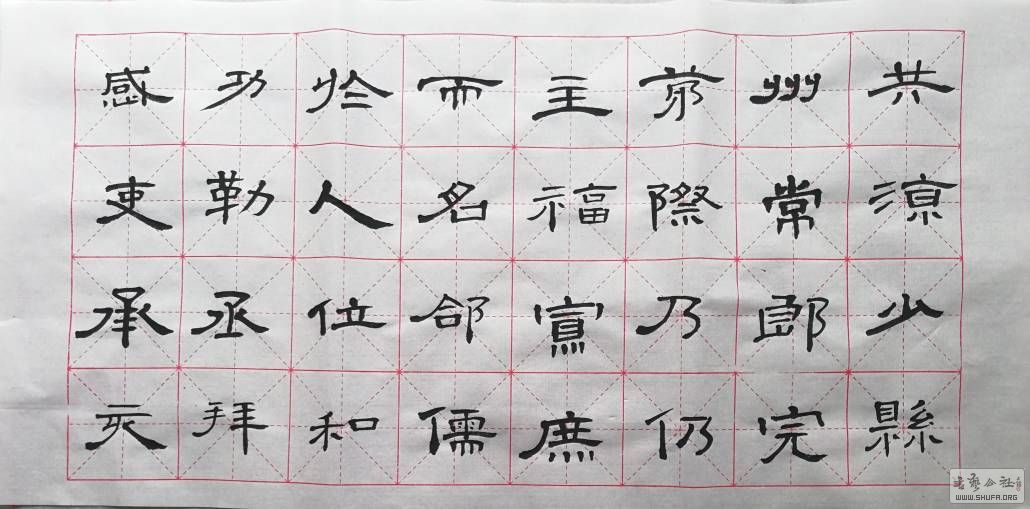 共涼少縣
州常郎完
苐際乃仍
主福庶
而名郃儒
於人位和
功勒丞拜
感吏承亥
书艺公社
WWW.SHUFA.ORG